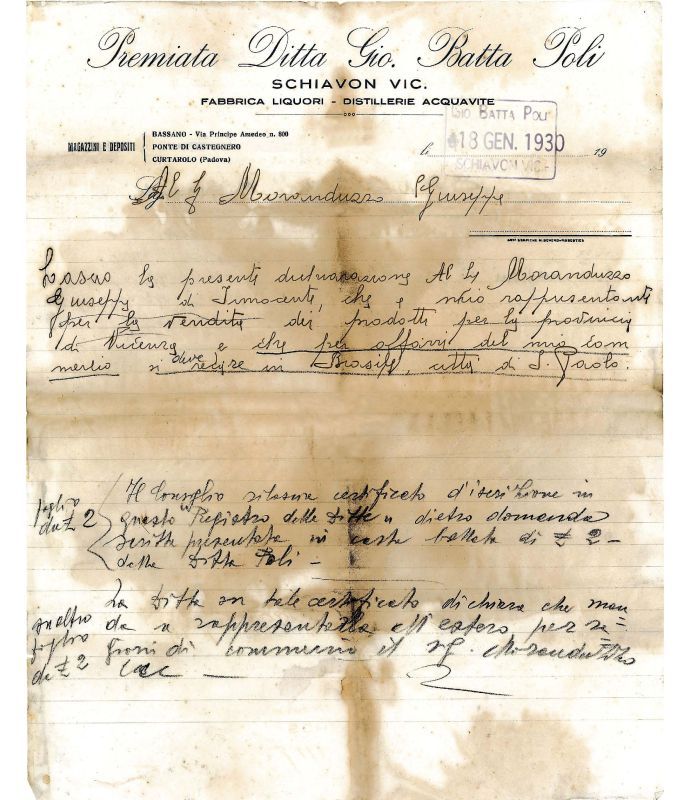 Premiata Ditta Gio. Batta Poli
SCHIAVON VIC.
FABBRICA LIQUORI - DISTILLERIE ACQUAVITE
GIO BATTA POLI
18 GEN. 1930
SCHIAVON VIC.
MAGAZZINI E DEPOSITI
BASSANO - Via Principe Amedeo n. 800
PONTE DI CASTEGNERO
CURTAROLO (Padova)
li 19
Al Sg Moranduzzo Giuseppe
ARTI GRAFICHE
Lascio la presente dichiarazione Al Sg Moranduzzo
Giuseppe di Innocente, che è mio rappresentante
per la vendita dei prodotti per la provincia
di Vicenza e che per affari del mio com
mercio si deve recare in Brasile, città di S. Paolo.
foglio
da £ 2
Il Consiglio rilascia certificato d'iscrizione in
questo Registro delle Ditte dietro domanda
scritta presentata in carta bollata di £ 2 -
della Ditta Poli -
inaltro
foglio
da £ 2
La Ditta in tale certificato dichiara che man
da a rappresentarla all'estero per ra=
gioni di commercio il sg. Moranduzzo